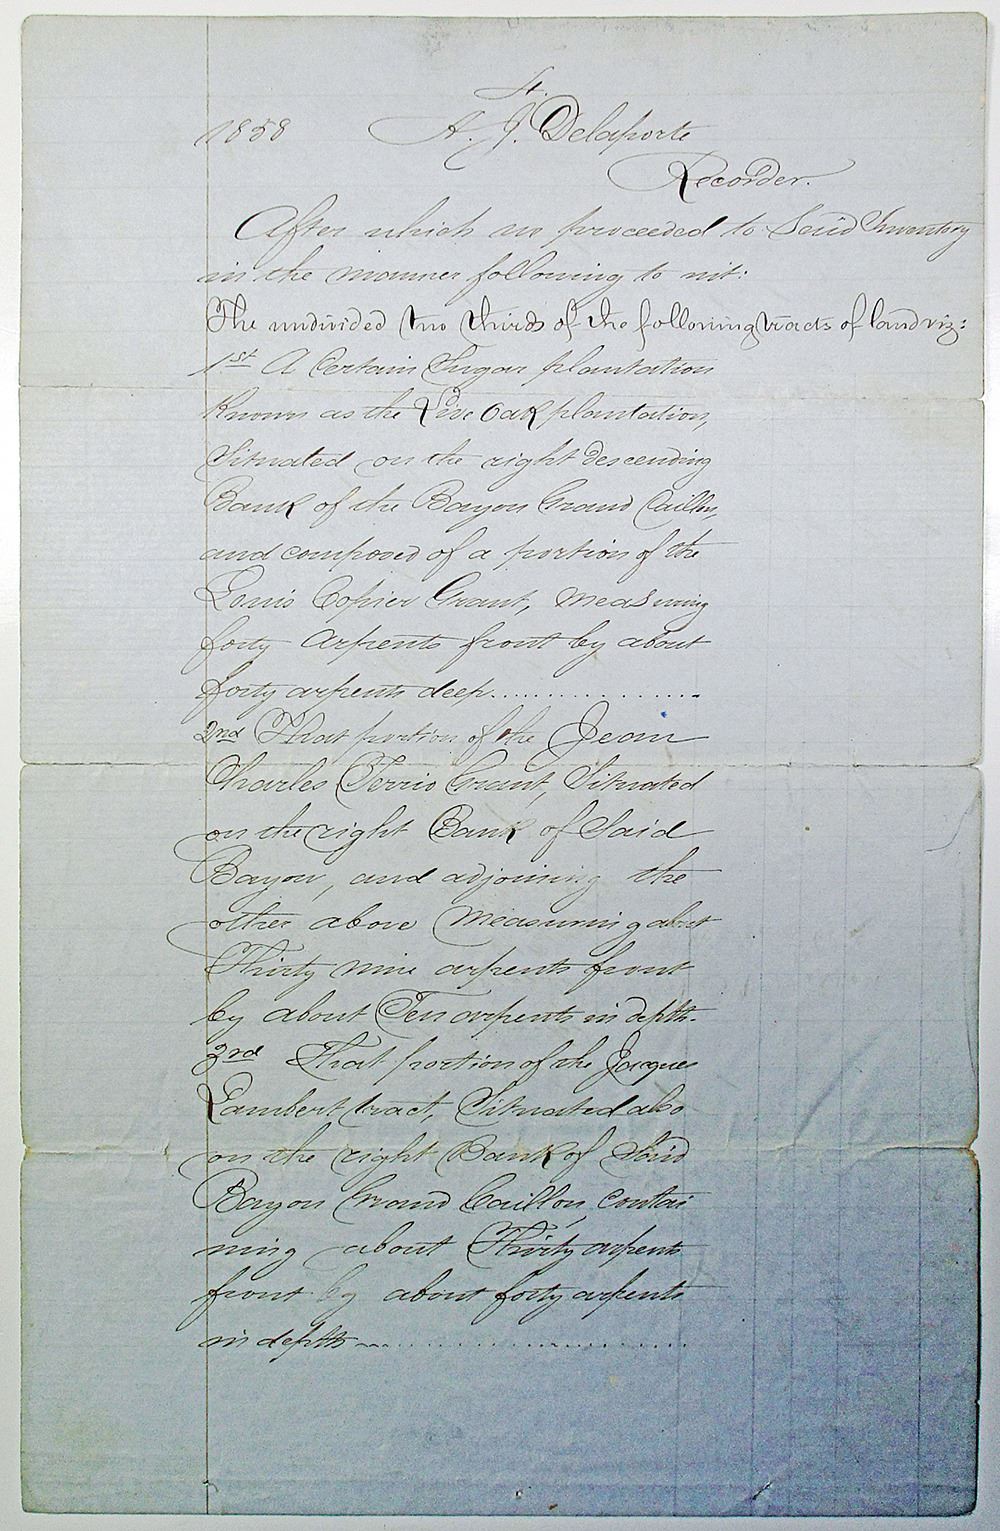 4.
1858 A. J. Delaporte
Recorder.
After which we proceeded to Said Inventory
in the manner following to wit:
The undivided two thirds of the following tracts of land viz:
1st A Certain Sugar plantation
Known as the Live Oak plantation,
Situated on the right descending
Bank of the Bayou Grand Caillou,
and composed of a portion of the
Louis Copier Grant, measuring
forty arpents front by about
forty arpents deep.
2nd That portion of the Jean
Charles Terrio Grant, Situated
on the right Bank of Said
Bayou, and adjoining the
other above measuring about
Thirty nine arpents front
by about Ten arpents in depth.
3rd That portion of the Jacques
Lambert tract, Situated also
on the right Bank of Said
Bayou Grand Caillou, contai
ning about Thirty arpents
front by about forty arpents
in depth